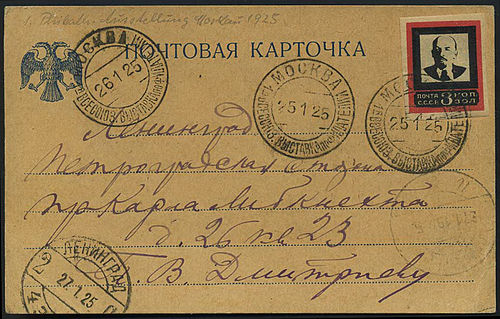 Ausstellung Moskau 1925
ПОЧТОВАЯ КАРТОЧКА
МОСКВА
26 1 25
МОСКВА
25 1 25
МОСКВА
25 1 25
ПОЧТА
СССР
3 КОП.
ЗОЛ.
Ленинград
Петроградская сторона
пр Карла Либкнехта
д. 26 кв 23
В. Дмитриеву
ЛЕНИНГРАД
27.1.25